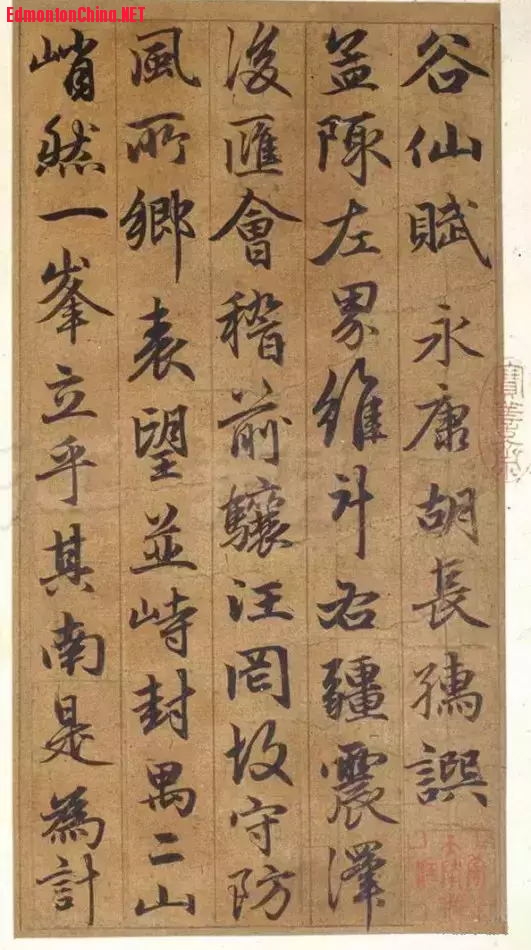 EdmontonChina.NET
谷仙賦 永康胡長孺譔
陬左界維斗右疆震澤
後匯會稽前驤汪罔故守防
風所鄉表望並峙封禺二山
峭然一峯立乎其南是為計